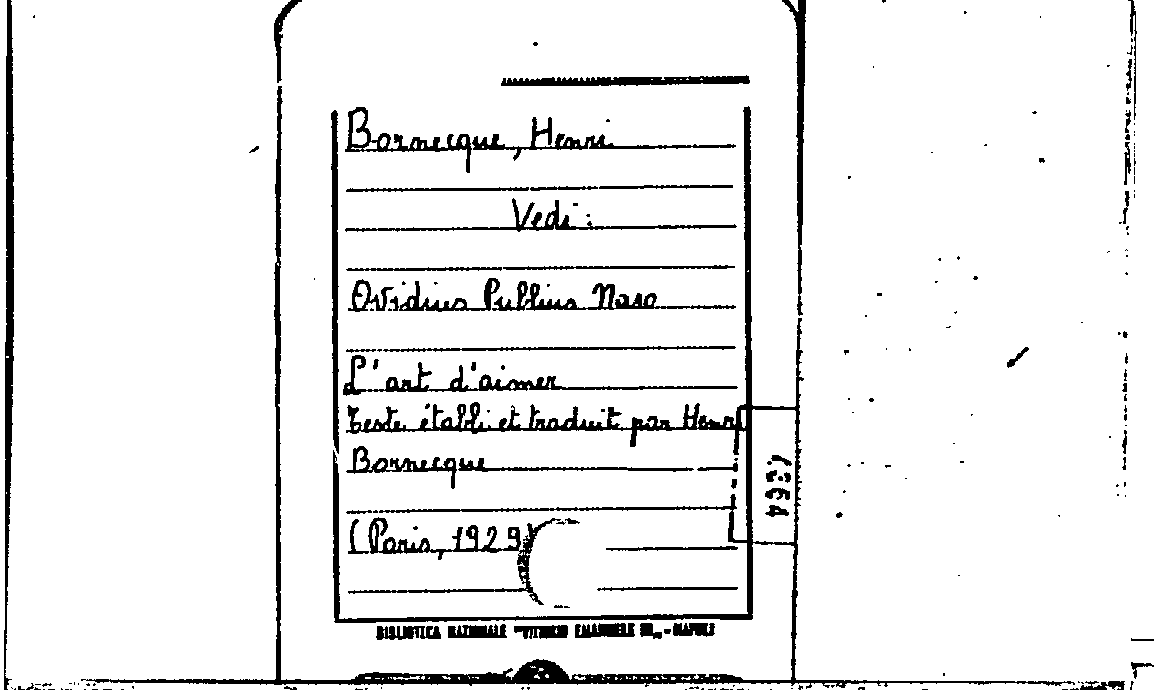 Bornecque, Henri
Vedi:
Ovidius Publius Naso
L'art d'aimer
Teste établi et traduit par Henri
Bornecque
(Paris, 1929)
BIBLIOTECA NAZIONALE "VITTORIO EMANUELE III„ - NAPOLI